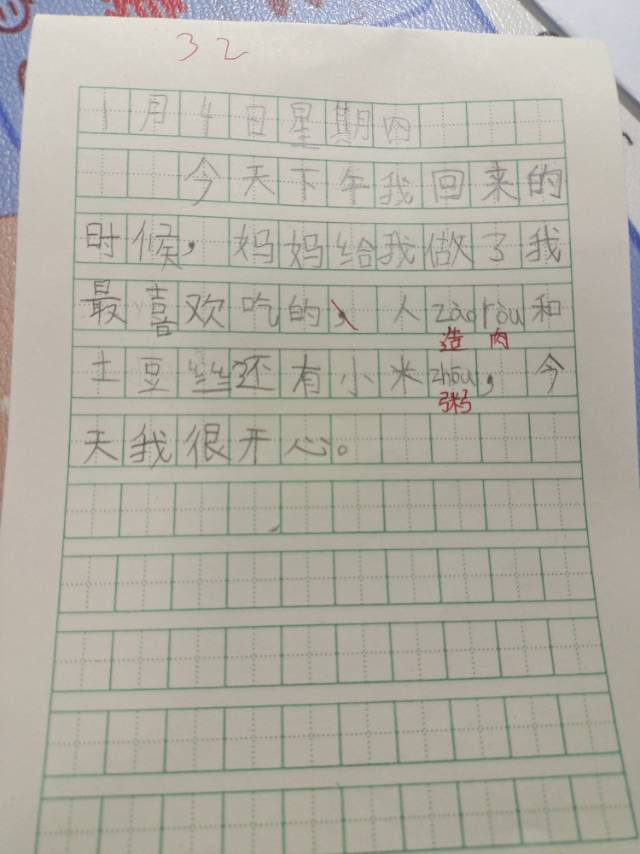 32
1月4日星期四
今天下午我回来的
时候，妈妈给我做了我
最喜欢吃的，人zàoròu和
造肉
土豆丝还有小米zhōu，今
粥
天我很开心。